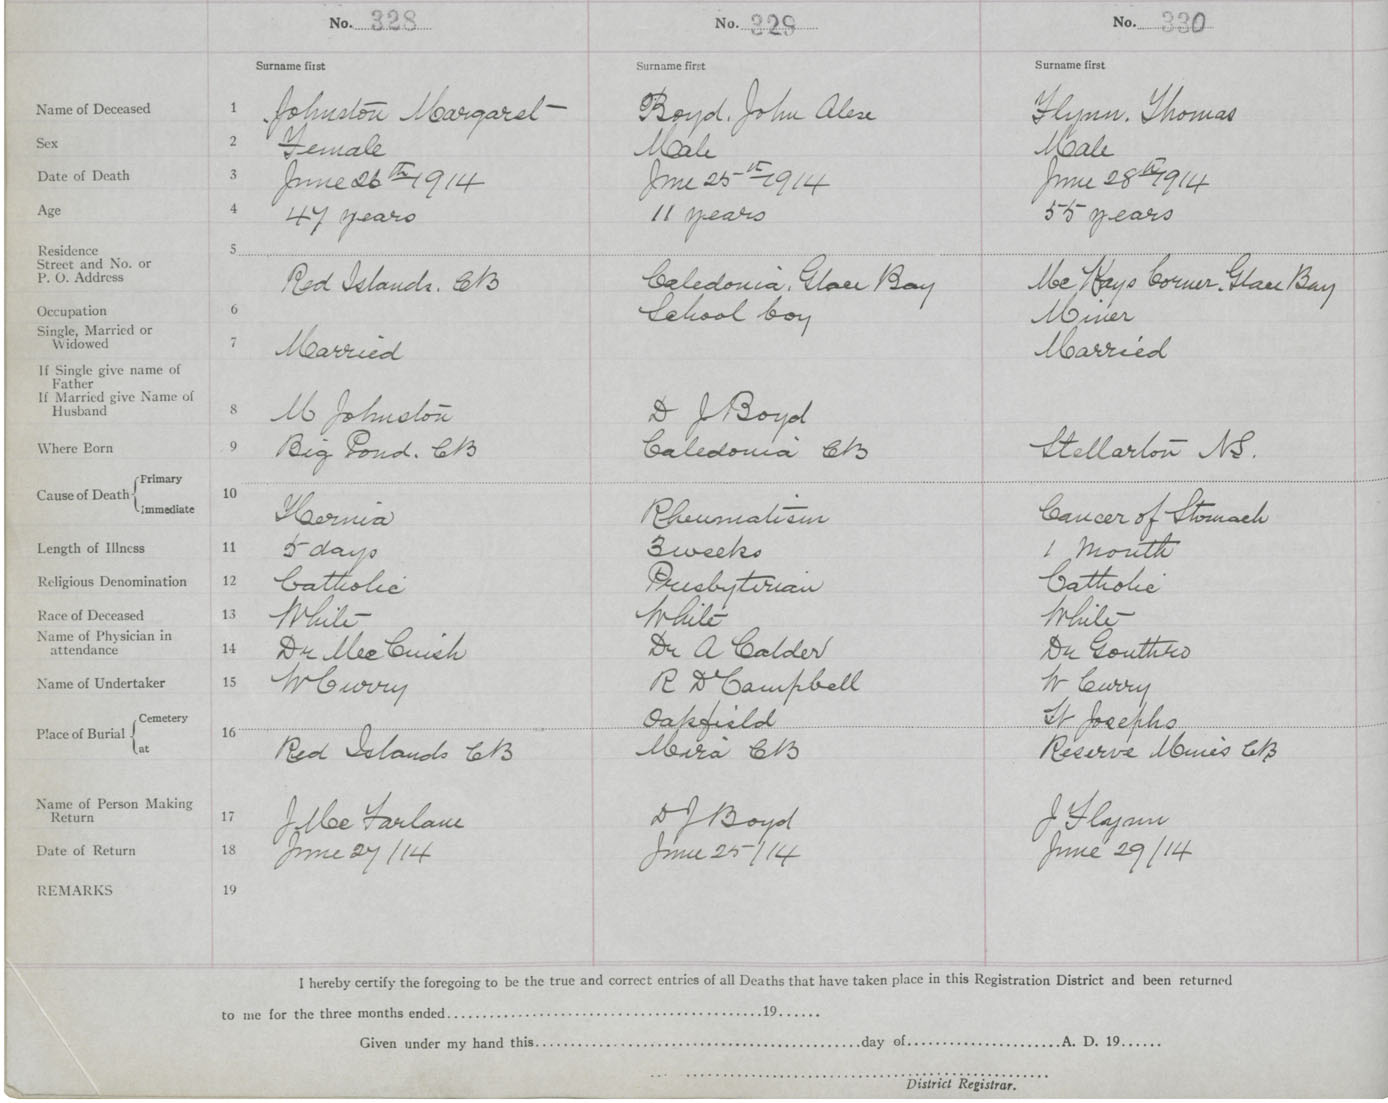 No. 328 No. 329 No. 330
Surname first Surname first Surname first
Name of Deceased 1 Johnston Margaret Boyd. John Alex Flynn. Thomas
Sex 2 Female Male Male
Date of Death 3 June 26th 1914 June 25th 1914 June 28th 1914
Age 4 47 years 11 years 55 years
Residence 5
Street and No. or
P. O. Address Red Islands. CB Caledonia. Glace Bay McKays Corner. Glace Bay
Occupation 6 School boy Miner
Single, Married or
Widowed 7 Married Married
If Single give name of
Father
If Married give Name of
Husband 8 M Johnston D J Boyd
Where Born 9 Big Pond. CB Caledonia CB Stellarton NS.
Cause of Death Primary 10
Immediate Hernia Rheumatism Cancer of Stomach
Length of Illness 11 5 days 3 weeks 1 month
Religious Denomination 12 Catholic Presbyterian Catholic
Race of Deceased 13 White White White
Name of Physician in
attendance 14 Dr MacCuish Dr A Calder Dr Gouthro
Name of Undertaker 15 W Curry R D Campbell W Curry
Place of Burial Cemetery 16 Oakfield St Josephs
at Red Islands CB Mira CB Reserve Mines CB
Name of Person Making
Return 17 J McFarlane D J Boyd J Flynn
Date of Return 18 June 27/14 June 25/14 June 29/14
REMARKS 19
I hereby certify the foregoing to be the true and correct entries of all Deaths that have taken place in this Registration District and been returned
to me for the three months ended 19
Given under my hand this day of A. D. 19
District Registrar.